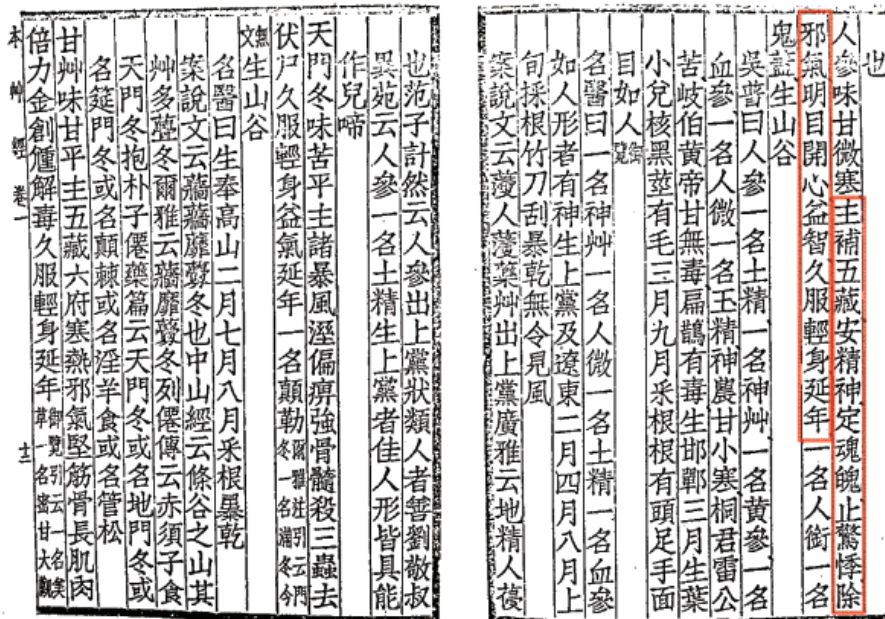 也
人參味甘微寒主補五藏安精神定魂魄止驚悸除
邪氣明目開心益智久服輕身延年一名人銜一名
鬼蓋生山谷
吳普曰人參一名土精一名神艸一名黃參一名
血參一名人微一名玉精神農甘小寒桐君雷公
苦岐伯黃帝甘無毒扁鵲有毒生邯鄲三月生葉
小兌核黑莖有毛三月九月采根根有頭足手面
目如人御覽
名醫曰一名神艸一名人微一名土精一名血參
如人形者有神生上黨及遼東二月四月八月上
旬採根竹刀刮暴乾無令見風
案說文云薓人薓藥艸出上黨廣雅云地精人薓
也范子計然云人參出上黨狀類人者善劉敬叔
異苑云人參一名土精生上黨者佳人形皆具能
作兒啼
天門冬味苦平主諸暴風溼偏痹強骨髓殺三蟲去
伏尸久服輕身益氣延年一名顛勒爾雅注引云門冬一名滿冬今
無文生山谷
名醫曰生奉高山二月七月八月采根暴乾
案說文云蘠蘠蘼虋冬也中山經云條谷之山其
艸多虋冬爾雅云蘠蘼虋冬列僊傳云赤須子食
天門冬抱朴子僊藥篇云天門冬或名地門冬或
名筵門冬或名顛棘或名淫羊食或名管松
甘艸味甘平主五藏六府寒熱邪氣堅筋骨長肌肉
倍力金創尰解毒久服輕身延年御覽引云一名美草一名密甘大觀
本艸經卷一 十三